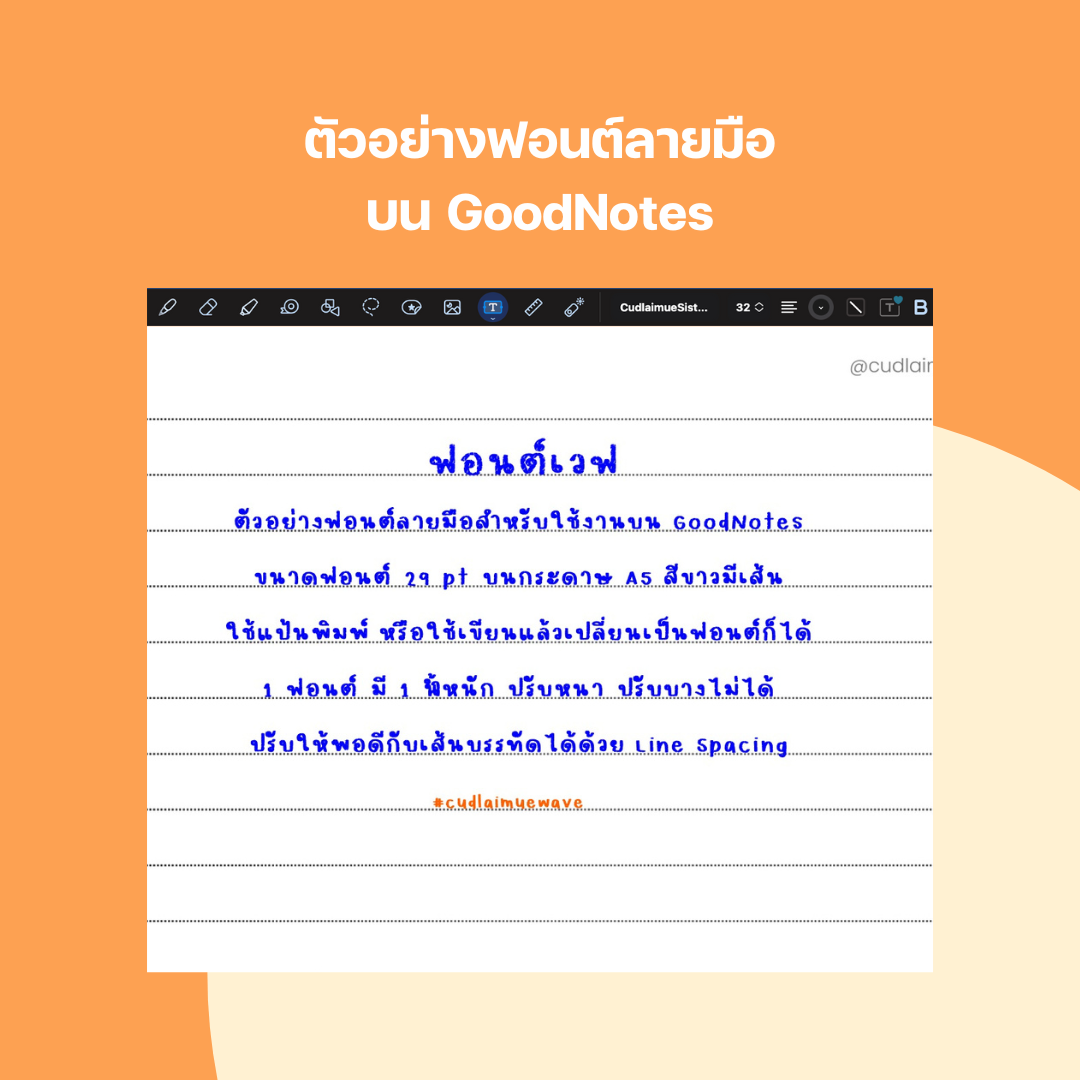 ตัวอย่างฟอนต์ลายมือ
บน GoodNotes
CudlaimueSist... 32 T B
@cudlair
ฟอนต์เวฟ
ตัวอย่างฟอนต์ลายมือสำหรับใช้งานบน GoodNotes
ขนาดฟอนต์ 29 pt บนกระดาษ A5 สีขาวมีเส้น
ใช้แป้นพิมพ์ หรือใช้เขียนแล้วเปลี่ยนเป็นฟอนต์ก็ได้
1 ฟอนต์ มี 1 น้ำหนัก ปรับหนา ปรับบางไม่ได้
ปรับให้พอดีกับเส้นบรรทัดได้ด้วย Line Spacing
#cudlaimuewave